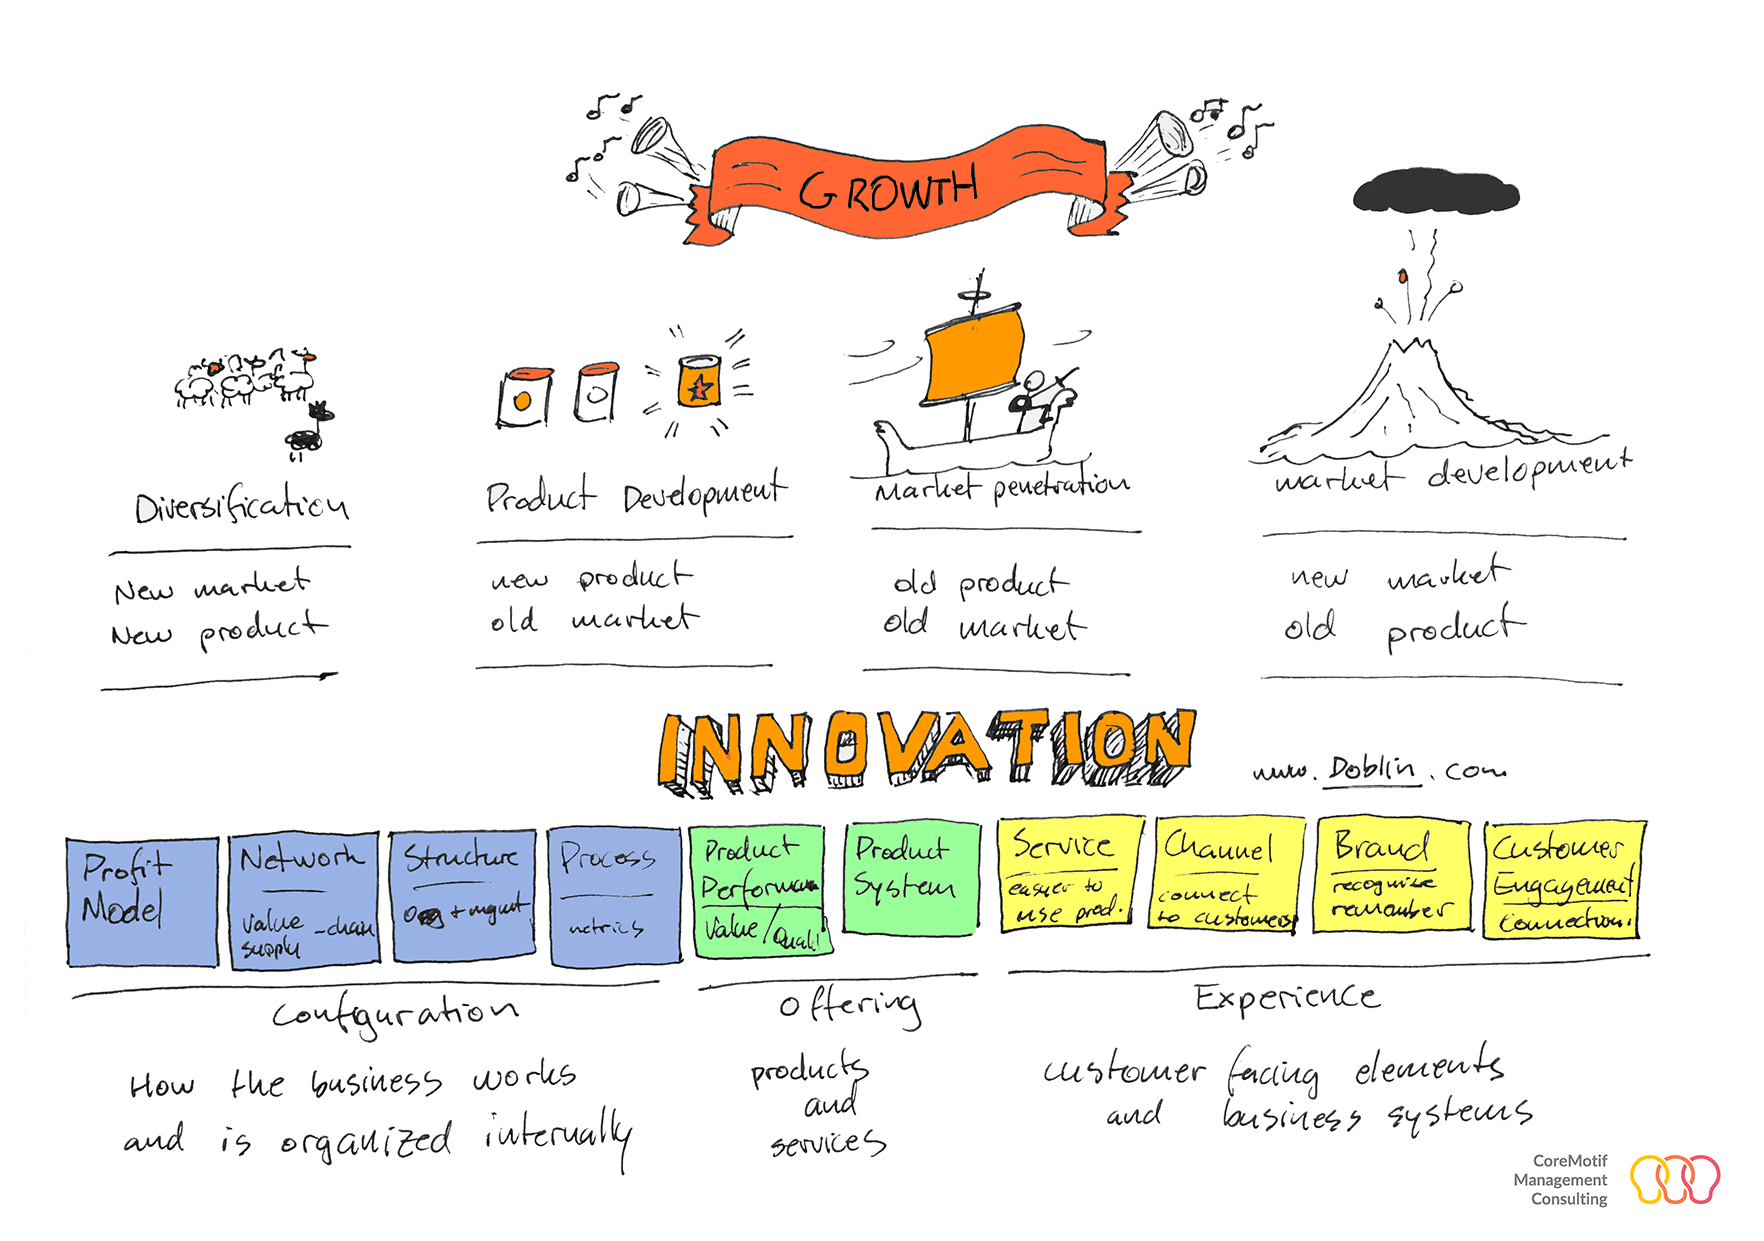 GROWTH
Diversification
New market
New product
Product Development
new product
old market
Market penetration
old product
old market
market development
new market
old product
INNOVATION
www.Doblin.com
Profit
Model
Network
value -chain
supply
Structure
+ mgmt
Process
metrics
Product
Performance
Value/Quali
Product
System
Service
easier to
use prod.
Channel
connect
to customers
Brand
recognize
remember
Customer
Engagement
Connection.
Configuration
How the business works
and is organized internally
Offering
products
and
services
Experience
customer facing elements
and business systems
CoreMotif
Management
Consulting